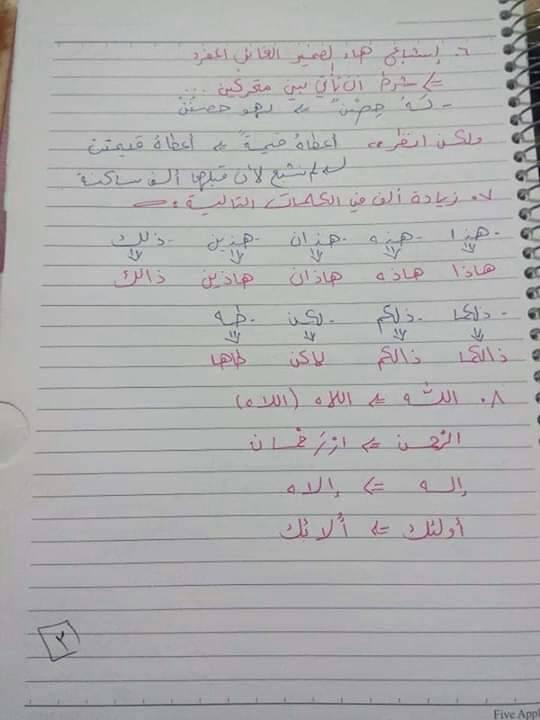 ٦. إشباع هاء لضمير الغائب المفرد
<= شرط أن تأتي بين متحركين ...
- لهُ حِصْنٌ <= لهو حصنُنْ
ولكن انظر أعطاهُ قيمةً <= أعطاهُ قيمتن
لم نشبع لأن قبلها ألف ساكنة
٧. زيادة ألف في الكلمات التالية :
- هذا - هذه - هذان - هذين - ذلك
هاذا هاذه هاذان هاذين ذالك
- ذلكما - ذلكم - لكن - طه
ذالكما ذالكم لاكن طاها
٨. الله <= اللاه (اللاه)
الرّحمن <= اررَحْمان
إله <= إلاه
أولئك <= ألائك
٣
Five